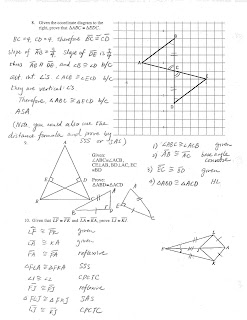 8. Given the coordinate diagram to the
right, prove that ΔABC ≅ ΔEDC.
BC = 4, CD = 4, therefore BC ≅ CD
slope of AB =
slope of DE is
thus AB ∥ DE, and ∠B ≅ ∠D b/c
alt. int. ∠'s. ∠ACB ≅ ∠ECD b/c
they are vertical ∠'s.
Therefore, ΔABC ≅ ΔEDC by
ASA
(Note, you could also use the
distance formula and prove by
SSS or SAS)
9.
Given:
∠ABC≅∠ACB,
Prove:
ΔABD≅ΔACD
1) ∠ABC ≅ ∠ACB given
2) AB ≅ AC base angle
3) BD ≅ given
4) ΔABD ≅ ΔACD HL
10. Given that LF ≅ FK and LA ≅ KA, prove LJ ≅ KJ
LF ≅ FK given
LA ≅ KA given
FA ≅ FA reflexive
ΔFLA ≅ ΔFKA SSS
CPCTC
FJ ≅ FJ reflexive
ΔFLJ ≅ ΔFKJ SAS
LJ ≅ KJ CPCTC